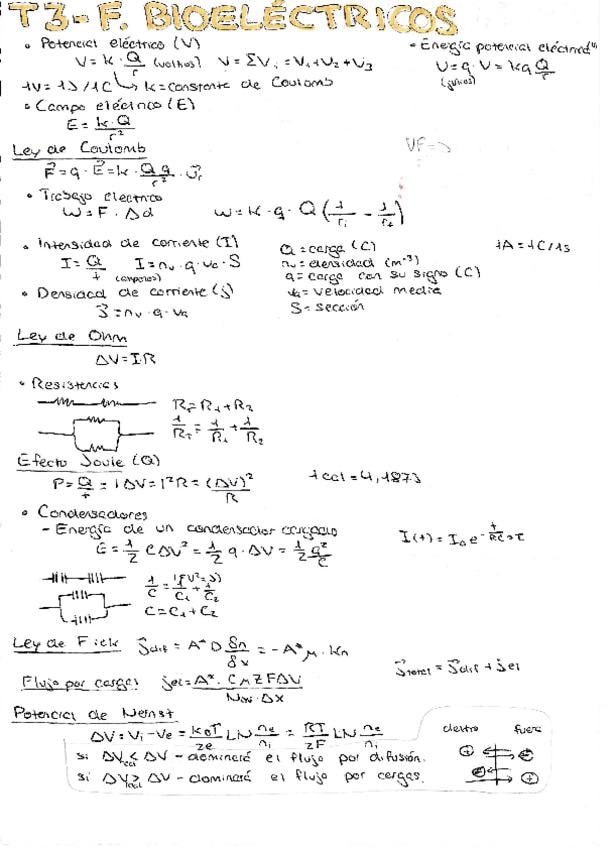 T3-F. BIOELÉCTRICOS
• Potencial eléctrico (V)
V = k · Q/r (voltios) V = ΣVi = V1 + V2 + V3
1V = 1J/1C k = constante de Coulomb
• Energía potencial eléctrica
U = q · V = kq Q/r
(julios)
• Campo eléctrico (E)
E = k·Q/r²
Ley de Coulomb
F = q · E = k · Q q/r² · Ur
VF =>
• Trabajo eléctrico
W = F · Δd W = k · q · Q (1/r1 - 1/r2)
• Intensidad de corriente (I)
I = Q/t I = nv · q · va · S
(amperios)
Q = carga (C)
nv = densidad (m⁻³)
q = carga con su signo (C)
va = velocidad media
S = sección
1A = 1C/1s
• Densidad de corriente (j)
J = nv · q · va
Ley de Ohm
ΔV = I·R
• Resistencias
RT = R1 + R2
1/RT = 1/R1 + 1/R2
Efecto Joule (Q)
P = Q/t = IΔV = I²R = (ΔV)²/R
1 cal = 4,187J
• Condensadores
- Energía de un condensador cargado
E = 1/2 CΔV² = 1/2 q · ΔV = 1/2 q²/C
I(t) = I0 e
1/C = 1/C1 + 1/C2
C = C1 + C2
Ley de Fick Jdif = A* D δn/δx = -A* μ · kn
Jtotal = Jdif + Jel
Flujo por cargas Jel = A* · C M Z F ΔV / · Δx
Potencial de Nernst
ΔV = Vi - Ve = kBT/ze LN ne/ni = RT/zF LN ne/ni
si ΔV < ΔV - dominará el flujo por difusión.
si ΔV > ΔV - dominará el flujo por cargas.
dentro fuera